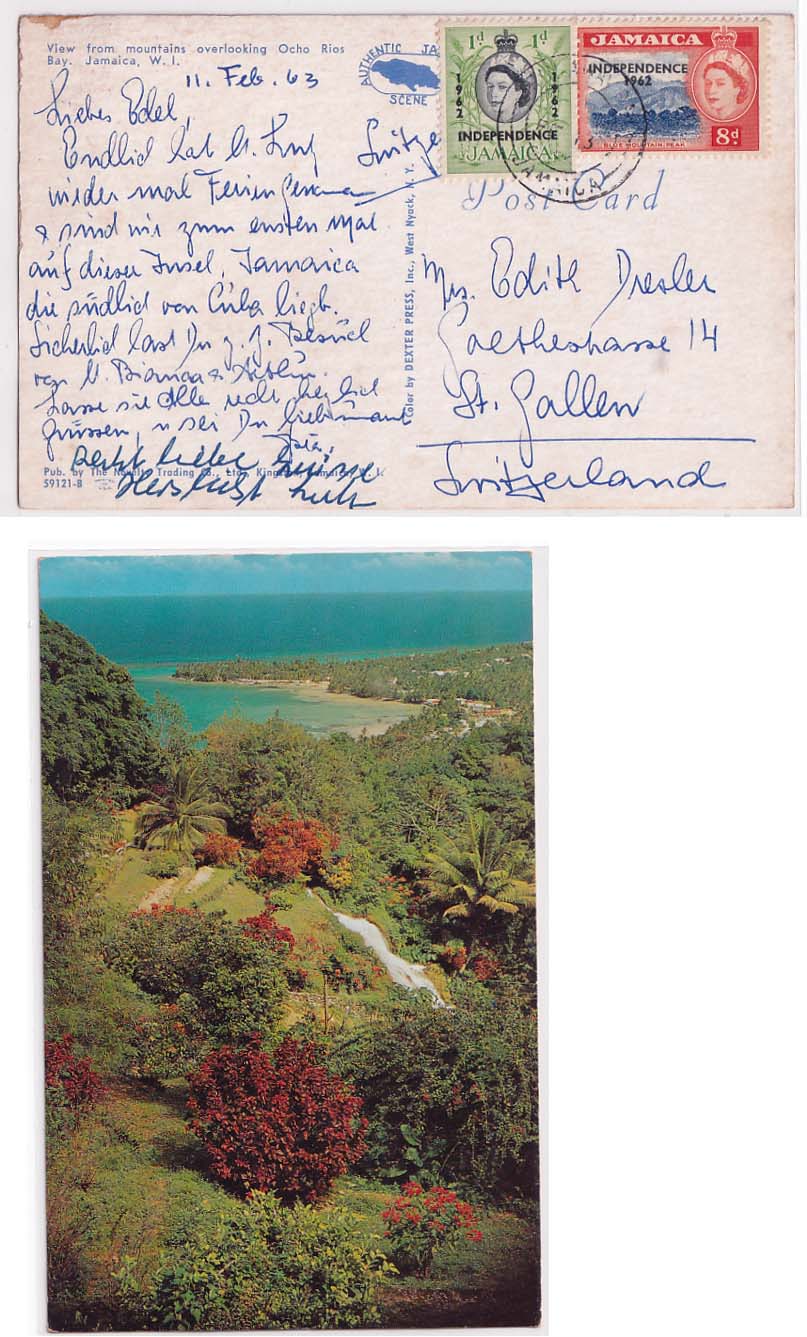 View from mountains overlooking Ocho Rios
Bay. Jamaica, W. I.
AUTHENTIC JA
SCENE
11. Feb. 63
Liebes Edel,
Endlich hat
wieder mal Ferien
& sind wir zum ersten Mal
auf dieser Insel, Jamaica
die südlich von Cuba liegt.
Sicherlich hast Du z. Z. Besuch
von Bianca &
Lasse sie Alle recht herzlich
grüssen, u sei Du
Pub. by The Novelty Trading Co., Ltd., Kingston, Jamaica, W. I.
59121-B
Color by DEXTER PRESS, Inc., West Nyack, N. Y.
1d 1d
1962 1962
INDEPENDENCE
JAMAICA
JAMAICA
INDEPENDENCE
1962
BLUE MOUNTAIN PEAK
8d
JAMAICA
Post Card
Mrs. Edith Dresler
Goethestrasse 14
St. Gallen
Switzerland